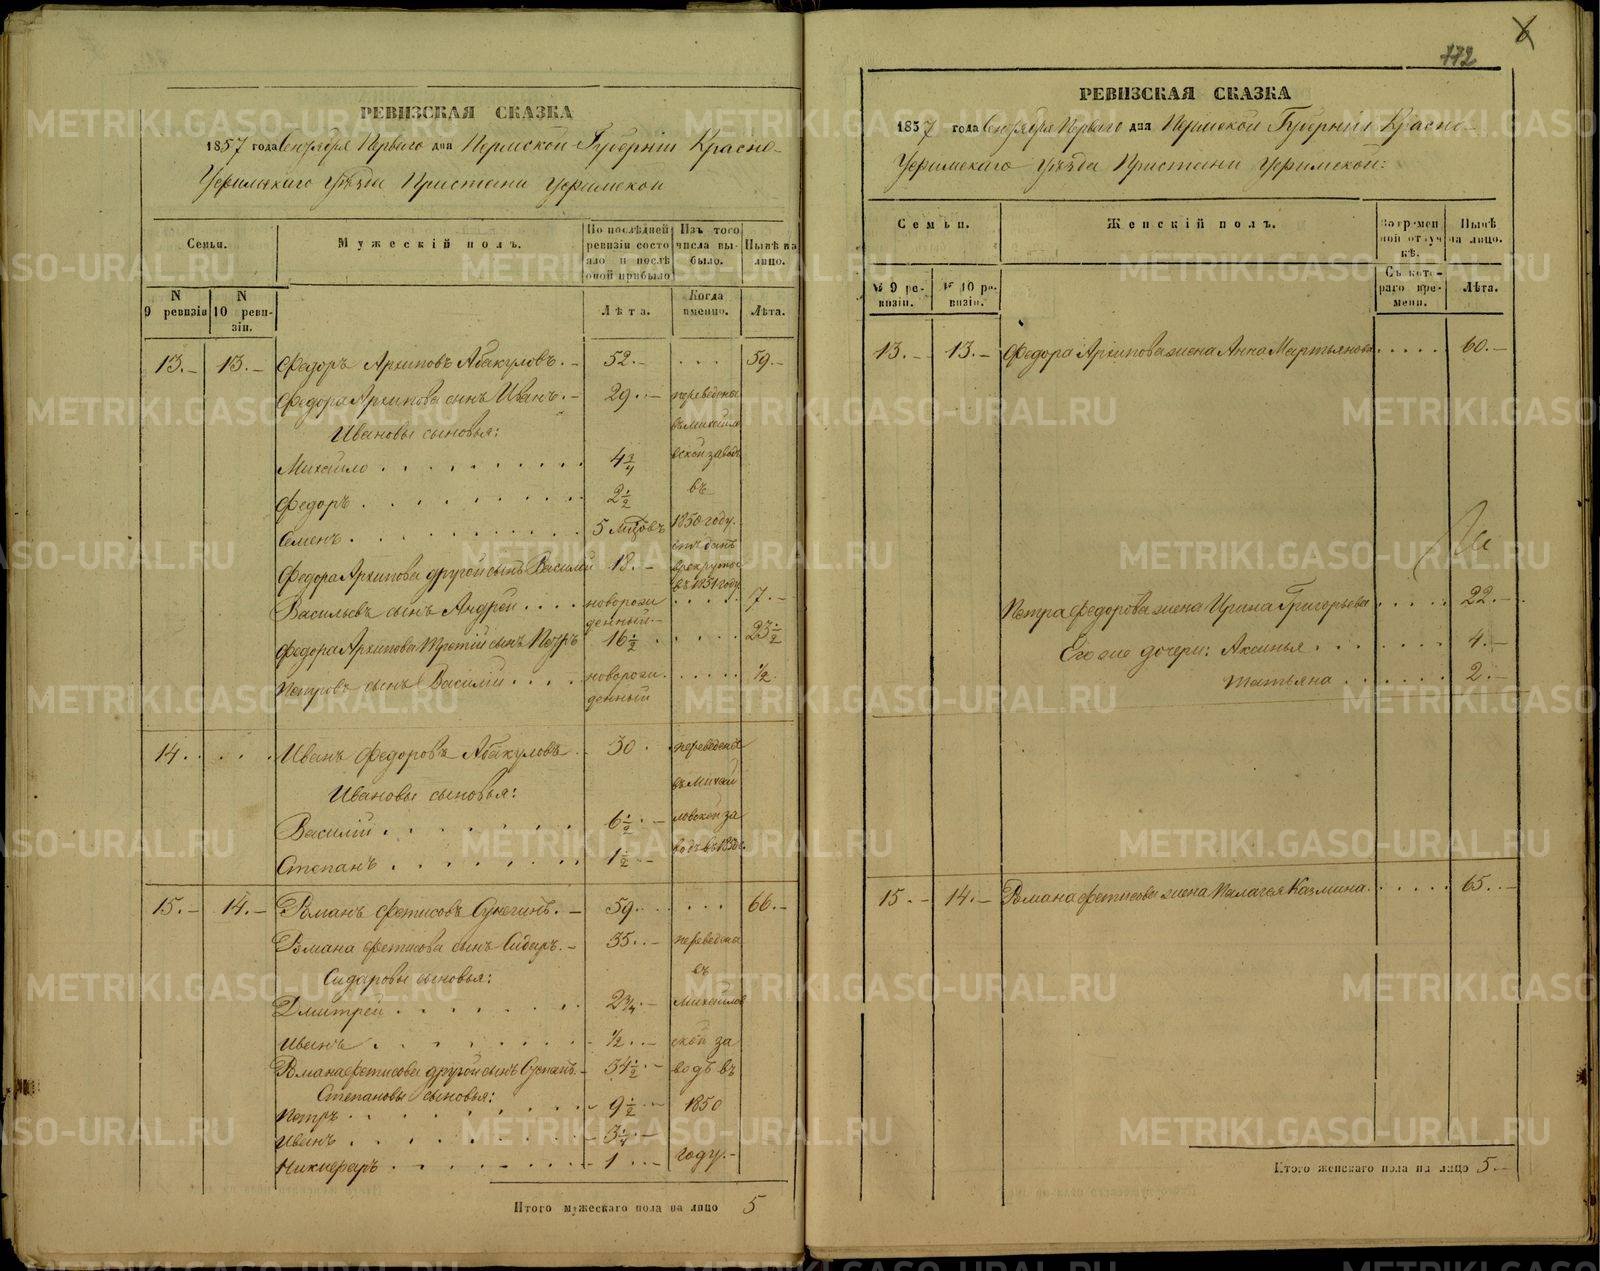 РЕВИЗСКАЯ СКАЗКА
1857 года Сентября Перваго дня Пермской Губерніи Красно-
Уфимскаго Уѣзда Пристани Уфимской
Семьи.
N 9 ревизіи
N 10 ревизіи.
Мужескій полъ.
По послѣдней ревизіи состояло и послѣ оной прибыло
Лѣта.
Изъ того числа выбыло.
Когда именно.
Нынѣ на лицо.
Лѣта.
13.— 13.— Федоръ Архиповъ Абакуловъ.— 52.— . . . 59.—
Федора Архипова сынъ Иванъ.— 29..— переведены
Ивановы сыновья: въ Михайлов
Михайло . . . . . . . . . 4 3/4 ской заводъ
Федоръ . . . . . . . . . 2 1/2 въ
Семенъ . . . . . . . . . 5 мцовъ 1850 году.
Федора Архипова другой сынъ Василий 18.— отданъ в рекруты въ 1851 году
Васильевъ сынъ Андрей . . . . новорожденный.— . . . . 7.—
Федора Архипова третій сынъ Петръ 16 1/2 . . . . . 23 1/2
Петровъ сынъ Василий . . . . новорожденный . . . . . 1/2
14 . . . . Иванъ Федоровъ Абакуловъ 30 . переведены
Ивановы сыновья: въ Михай
Василій . . . . . . . 6 1/2 .— ловской за
Степанъ . . . . . . . . 1 1/2 .— водъ въ 1850 г.
15.— 14.— Романъ Фетисовъ Сунегинъ.— 59 . . . . . 66.—
Романа Фетисова сынъ Сидаръ.— 35..— переведены
Сидаровы сыновья: въ
Дмитрей . . . . . . . . 2 3/4 .— Михайлов
Иванъ . . . . . . . . . 1/2 ..— ской за
Романа Фетисова другой сынъ Степанъ.— 34 1/2 .— водъ въ
Степановы сыновья:
Петръ . . . . . . . . . 9 1/2 .— 1850
Иванъ . . . . . . . . . 3 1/4 .—
Никифаръ . . . . . . . . 1 ..— году.—
Итого мужескаго пола на лицо 5
172
6
РЕВИЗСКАЯ СКАЗКА
1857 года Сентября Перваго дня Пермской Губерніи Красно-
Уфимскаго Уѣзда Пристани Уфимской:
Семьи.
№ 9 ревизіи.
№ 10 ревизіи.
Женскій полъ.
Во временной отлучкѣ.
Съ котораго времени.
Нынѣ на лицо.
Лѣта.
13.— 13.— Федора Архипова жена Анна Мартьянова . . . . . 60.—
Петра Федорова жена Ирина Григорьева . . . . . 22.—
Его же дочери: Аксинья . . . . . . . 4.—
Татьяна . . . . . . . 2.—
15.— 14.— Романа Фетисова жена Палагея Казмина . . . . . . 65..—
Итого женскаго пола на лицо 5—
METRIKI.GASO-URAL.RU